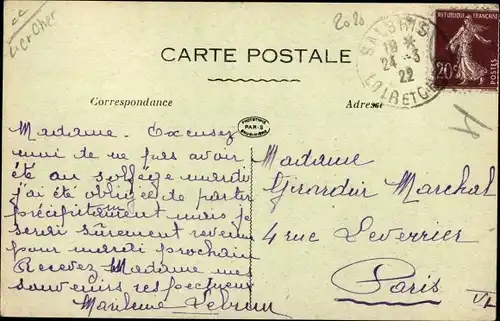 cc
L et Cher
2020
SALBRIS
18 *
24 -3
22
LOIR ET CHER
REPUBLIQUE FRANÇAISE
20c
POSTES
CARTE POSTALE
Correspondance
Adresse
PAR-S
Madame. Excusez
moi de ne pas avoir
été au solfège mardi
j'ai été obligée de partir
précipitamment mais je
serai sûrement revenue
pour mardi prochain
Recevez Madame mes
souvenirs respectueux
Marilene Lebrun
Madame
Girardin Marchal
4 rue Leverrier
Paris